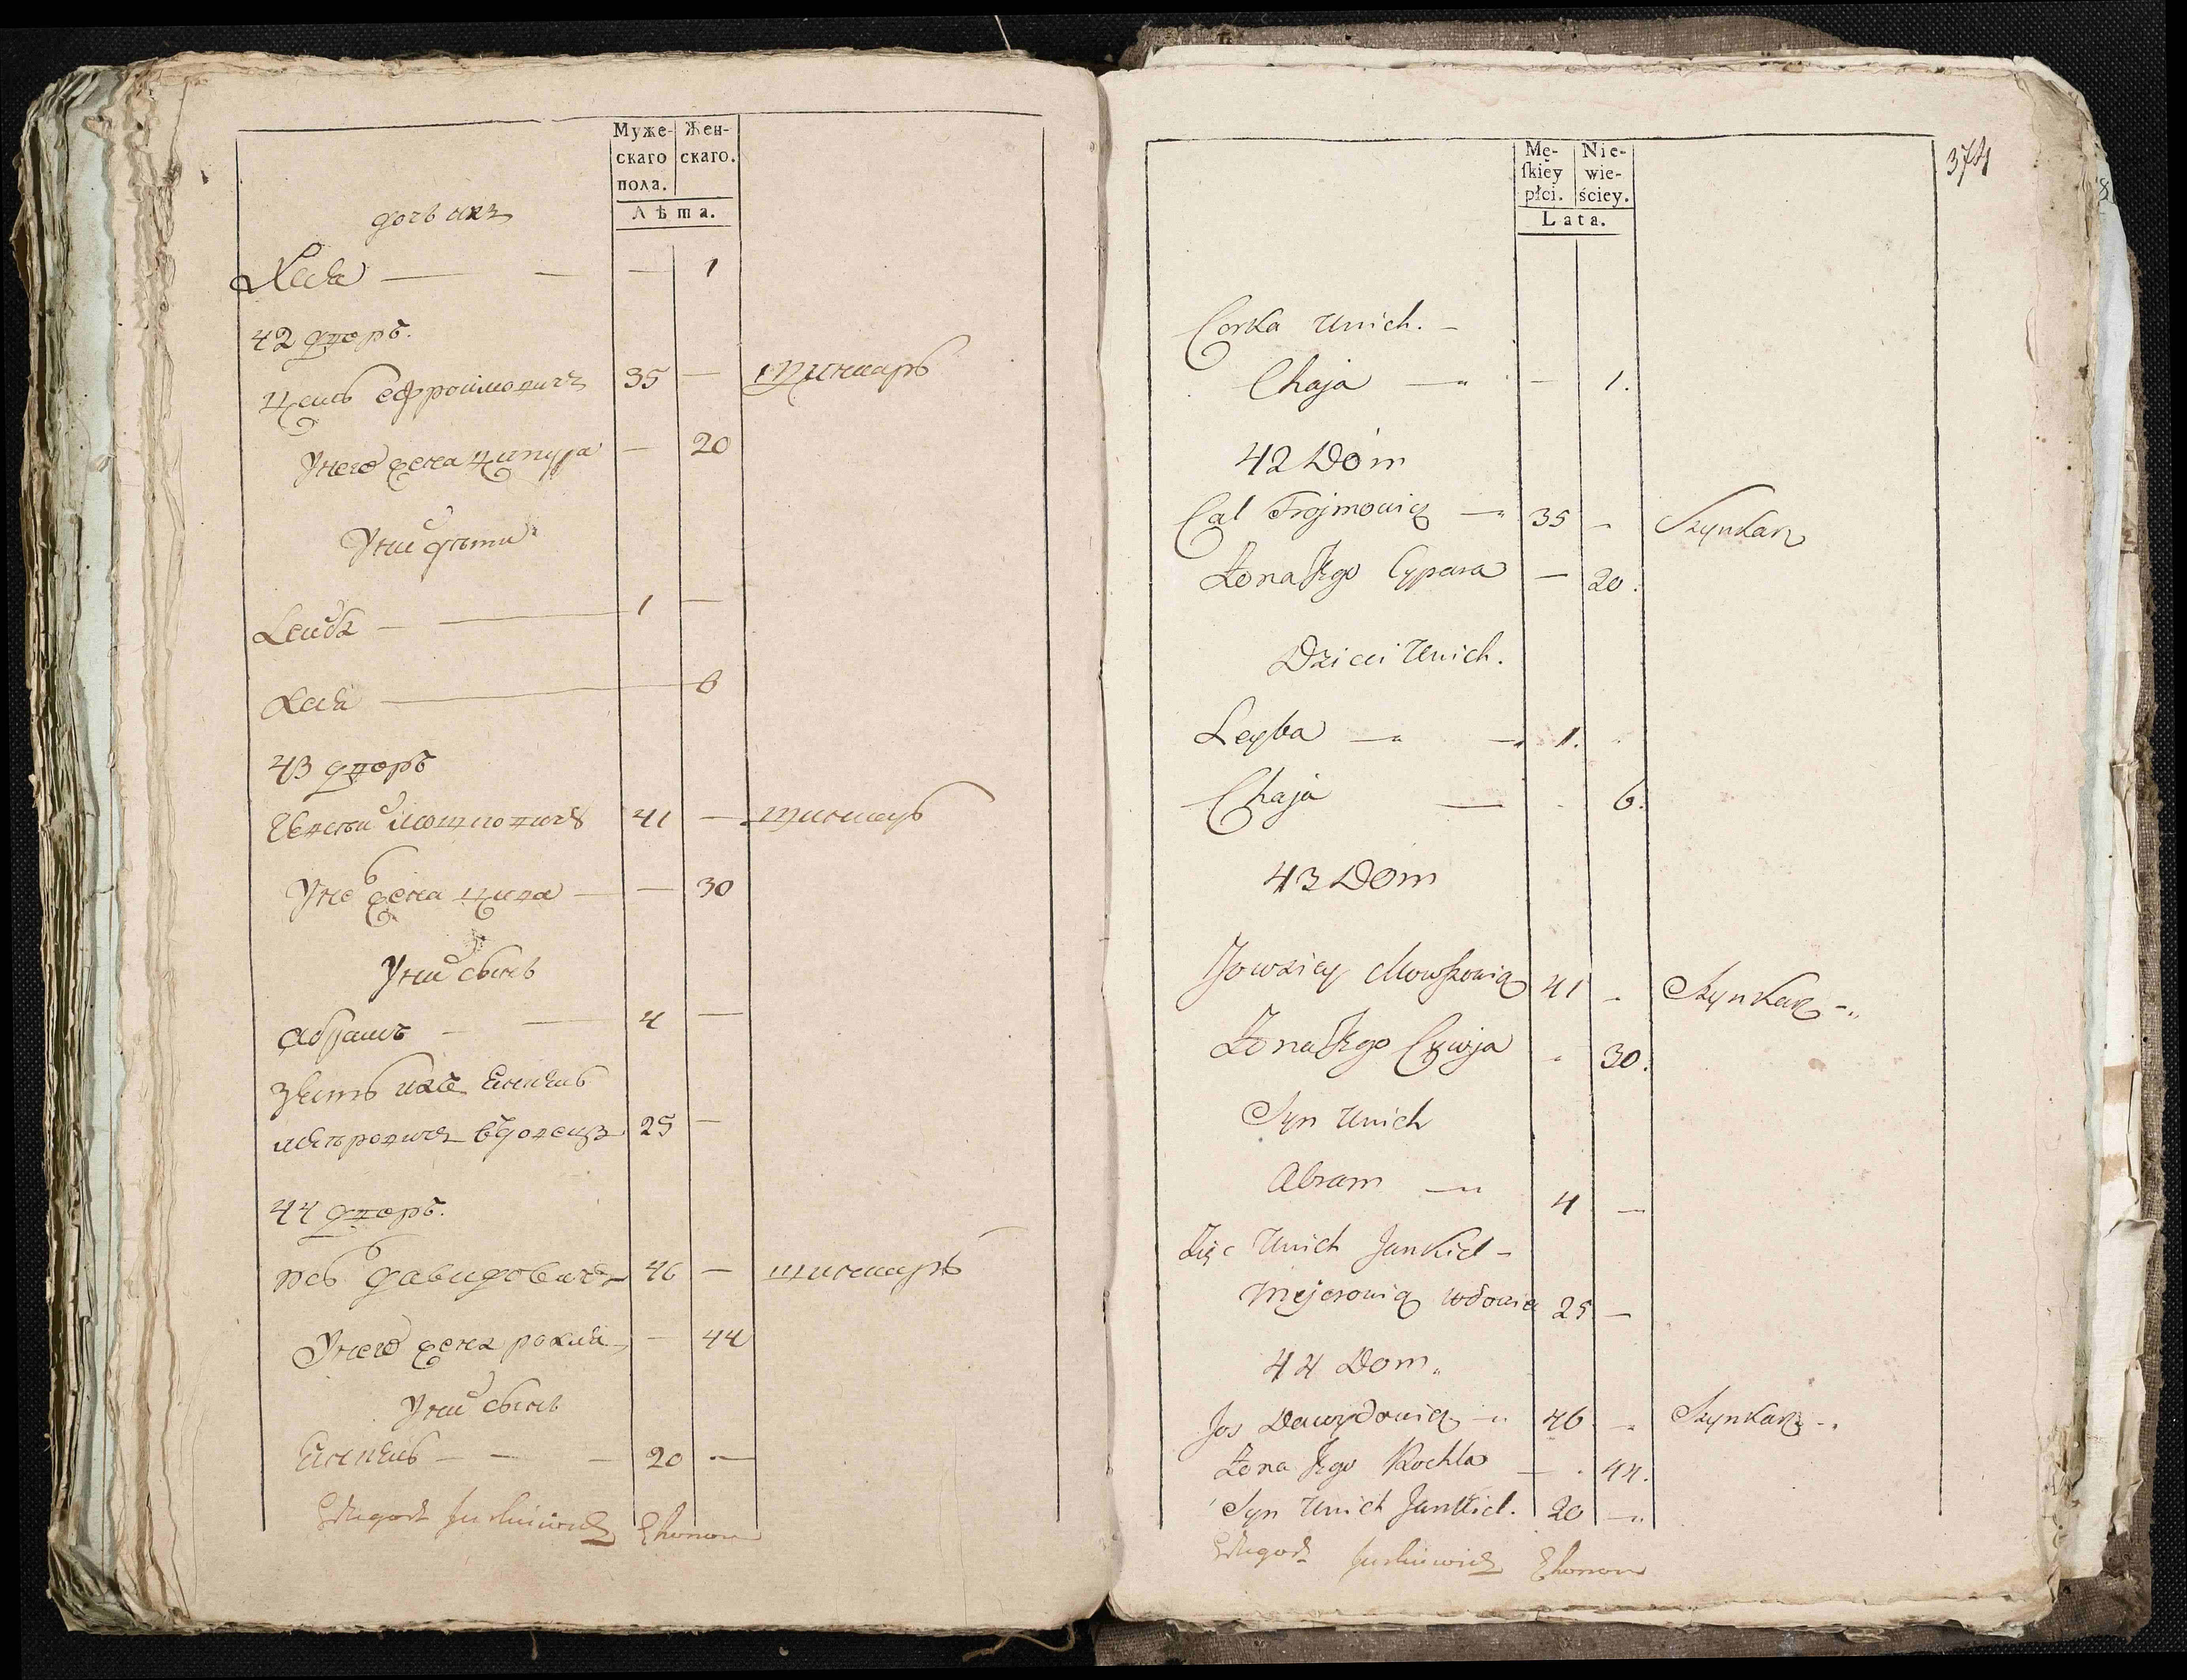 Муже-
скаго
пола.
Жен-
скаго.
Лѣта.
дочь ихъ
Хая — — — 1
42 дворъ.
Цаль Ефроимовичъ 35 — шинкарь
У него жена Ципура — 20
У них дѣти
Лейба — — 1 —
Хая — 6
43 дворъ
41 — шинкарь
У не жена Цивя — — 30
У них сынъ
Абрамъ — — 4 —
Зять ихъ Янкель
Меёровичъ вдовецъ 25 —
44 дворъ.
Іось Давидовичъ 46 — шинкарь
У него жена Рохля — 44
У них сынъ
Янкель — — — 20 —
374
Mę-
ſkiey
płci.
Nie-
wie-
ściey.
Lata.
Corka Unich. —
Chaja — — 1.
42 Dom
Cal Frojmowicz — 35 — Szynkarz
Żona Jego Cypura — 20.
Dzieci Unich.
Leyba — — 1.
Chaja — 6.
43 Dom
Jowsiey Mowszowicz 41 — Szynkarz —
Żona Jego Cywja 30.
Syn Unich
Abram — 4 —
Zięc Unich Jankiel —
Mejerowicz wdowiec 25 —
44 Dom.
Jos Dawydowicz — 46 — Szynkarz —
Żona Jego Rochla — 44.
Syn Unich Jankiel. 20 —